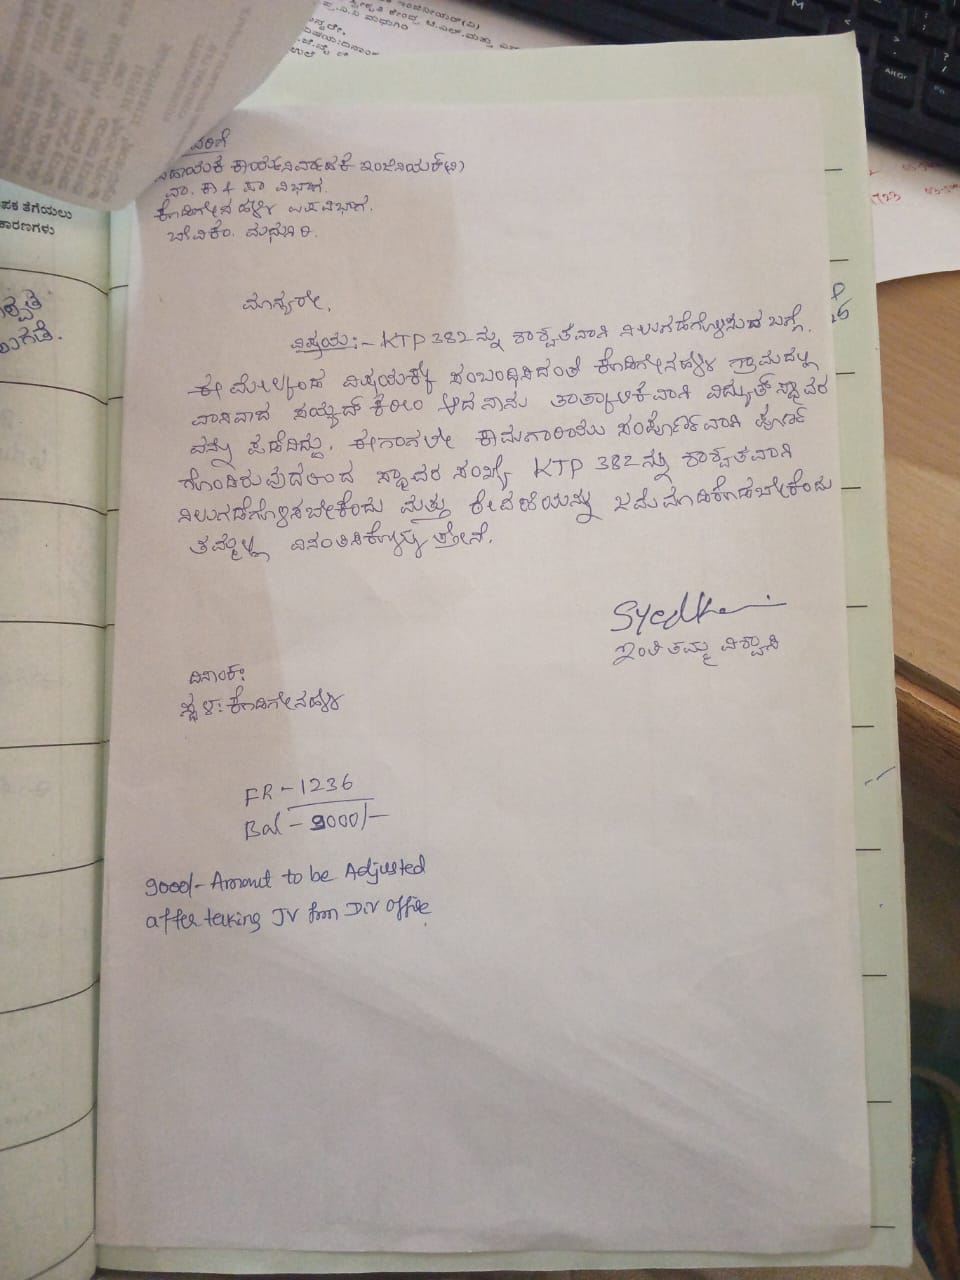 ಪಕ ತೆಗೆಯಲು
ಕಾರಣಗಳು
ವರಿಗೆ
ಸಹಾಯಕ ಕಾರ್ಯನಿರ್ವಾಹಕ ಇಂಜಿನಿಯರ್(ವಿ)
ವಾ. ಕಾ & ಪಾ ವಿಭಾಗ.
ಕೊಡಿಗೇನಹಳ್ಳಿ ಉಪವಿಭಾಗ.
ಬೆವಿಕಂ. ಮಧುಗಿರಿ.
ಮಾನ್ಯರೇ,
ವಿಷಯ:- KTP 382 ನ್ನು ಶಾಶ್ವತವಾಗಿ ನಿಲುಗಡೆಗೊಳಿಸುವ ಬಗ್ಗೆ.
ಈ ಮೇಲ್ಕಂಡ ವಿಷಯಕ್ಕೆ ಸಂಬಂಧಿಸಿದಂತೆ ಕೊಡಿಗೇನಹಳ್ಳಿ ಗ್ರಾಮದಲ್ಲಿ
ವಾಸಿವಾದ ಸಯ್ಯದ್ ಕರೀಂ ಆದ ನಾನು ತಾತ್ಕಾಲಿಕವಾಗಿ ವಿದ್ಯುತ್ ಸ್ಥಾವರ
ವನ್ನು ಪಡೆದಿದ್ದು. ಈಗಾಗಲೇ ಕಾಮಗಾರಿಯು ಸಂಪೂರ್ಣವಾಗಿ ಪೂರ್ಣ
ಗೊಂಡಿರುವುದರಿಂದ ಸ್ಥಾವರ ಸಂಖ್ಯೆ KTP 382 ನ್ನು ಶಾಶ್ವತವಾಗಿ
ನಿಲುಗಡೆಗೊಳಿಸಬೇಕೆಂದು ಮತ್ತು ಠೇವಣಿಯನ್ನು ಜಮ ಮಾಡಿಕೊಡಬೇಕೆಂದು
ತಮ್ಮಲ್ಲಿ ವಿನಂತಿಸಿಕೊಳ್ಳುತ್ತೇನೆ.
ಇಂತಿ ತಮ್ಮ ವಿಶ್ವಾಸಿ
ದಿನಾಂಕ:
ಸ್ಥಳ: ಕೊಡಿಗೇನಹಳ್ಳಿ
FR - 1236
Bal - 9000/-
9000/- Amount to be Adjusted
after taking JV from Div office.